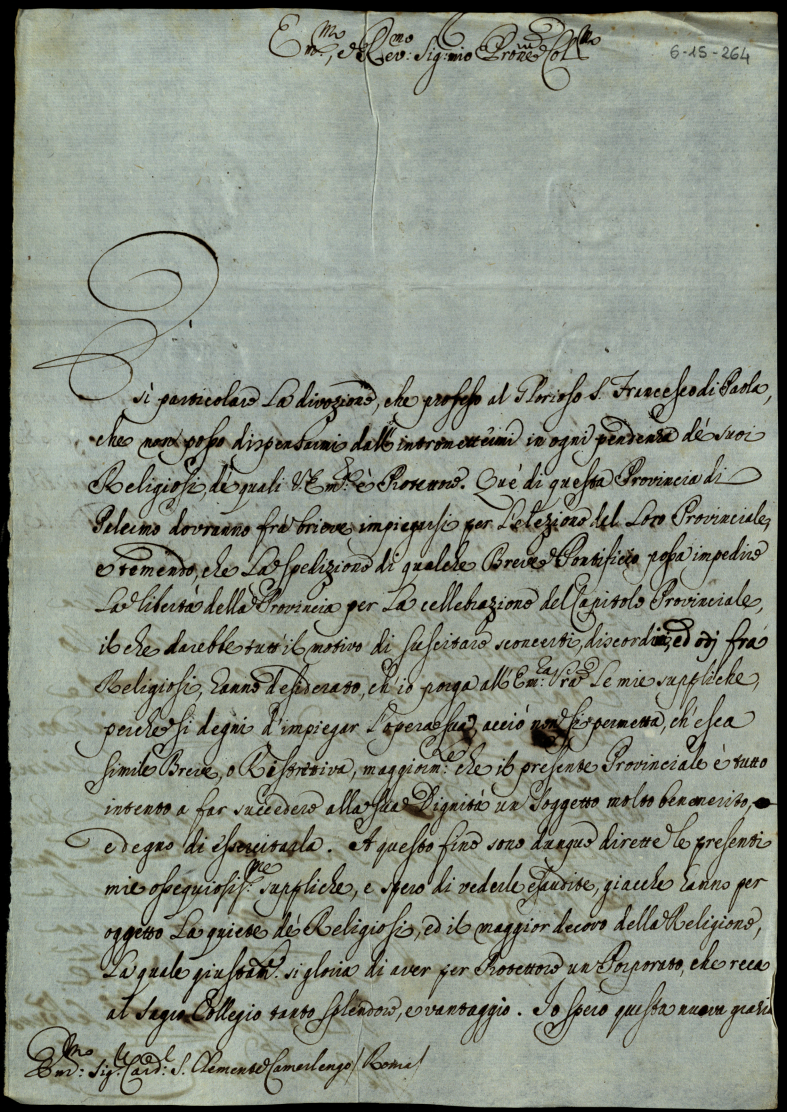 Em:mo, e Rev:mo Sig: mio Prone Col:mo
6-15-264
È sì particolare la divozione, che professo al Glorioso S. Francesco di Paola,
che non posso dispensarmi dall'intromettermi in ogni pendenza de' suoi
Religiosi, de' quali V. Em:za è Protettore. Que' di questa Provincia di
Palermo dovranno frà brieve impiegarsi per l'elezione del loro Provinciale,
e temendo, che la spedizione di qualche Breve Pontificio possa impedire
la libertà della Provincia per la cellebrazione del Capitolo Provinciale,
il che darebbe tutt'il motivo di suscitare sconcerti, discordie, ed odj frà
Religiosi, hanno desiderato, ch'io porga all'Em:za Vra le mie suppliche,
perche si degni d'impiegar l'opera sua, acciò non si permetta, ch'esca
simile Breve, o Restrittiva, maggiorm:te che il presente Provinciale è tutto
intento a far succedere alla sua Dignità un Soggetto molto benemerito,
e degno di essercitarla. A questo fine sono dunque dirette le presenti
mie ossequiosiss:me suppliche, e spero di vederle esaudite, giacche hanno per
oggetto la quiete de' Religiosi, ed il maggior decoro della Religione,
la quale giustam: si gloria di aver per Protettore un Porporato, che reca
al Sagro Collegio tanto splendore, e vantaggio. Io spero questa nuova grazia
Em:mo Sig:r Card:l S. Clemente Camerlengo / Roma /